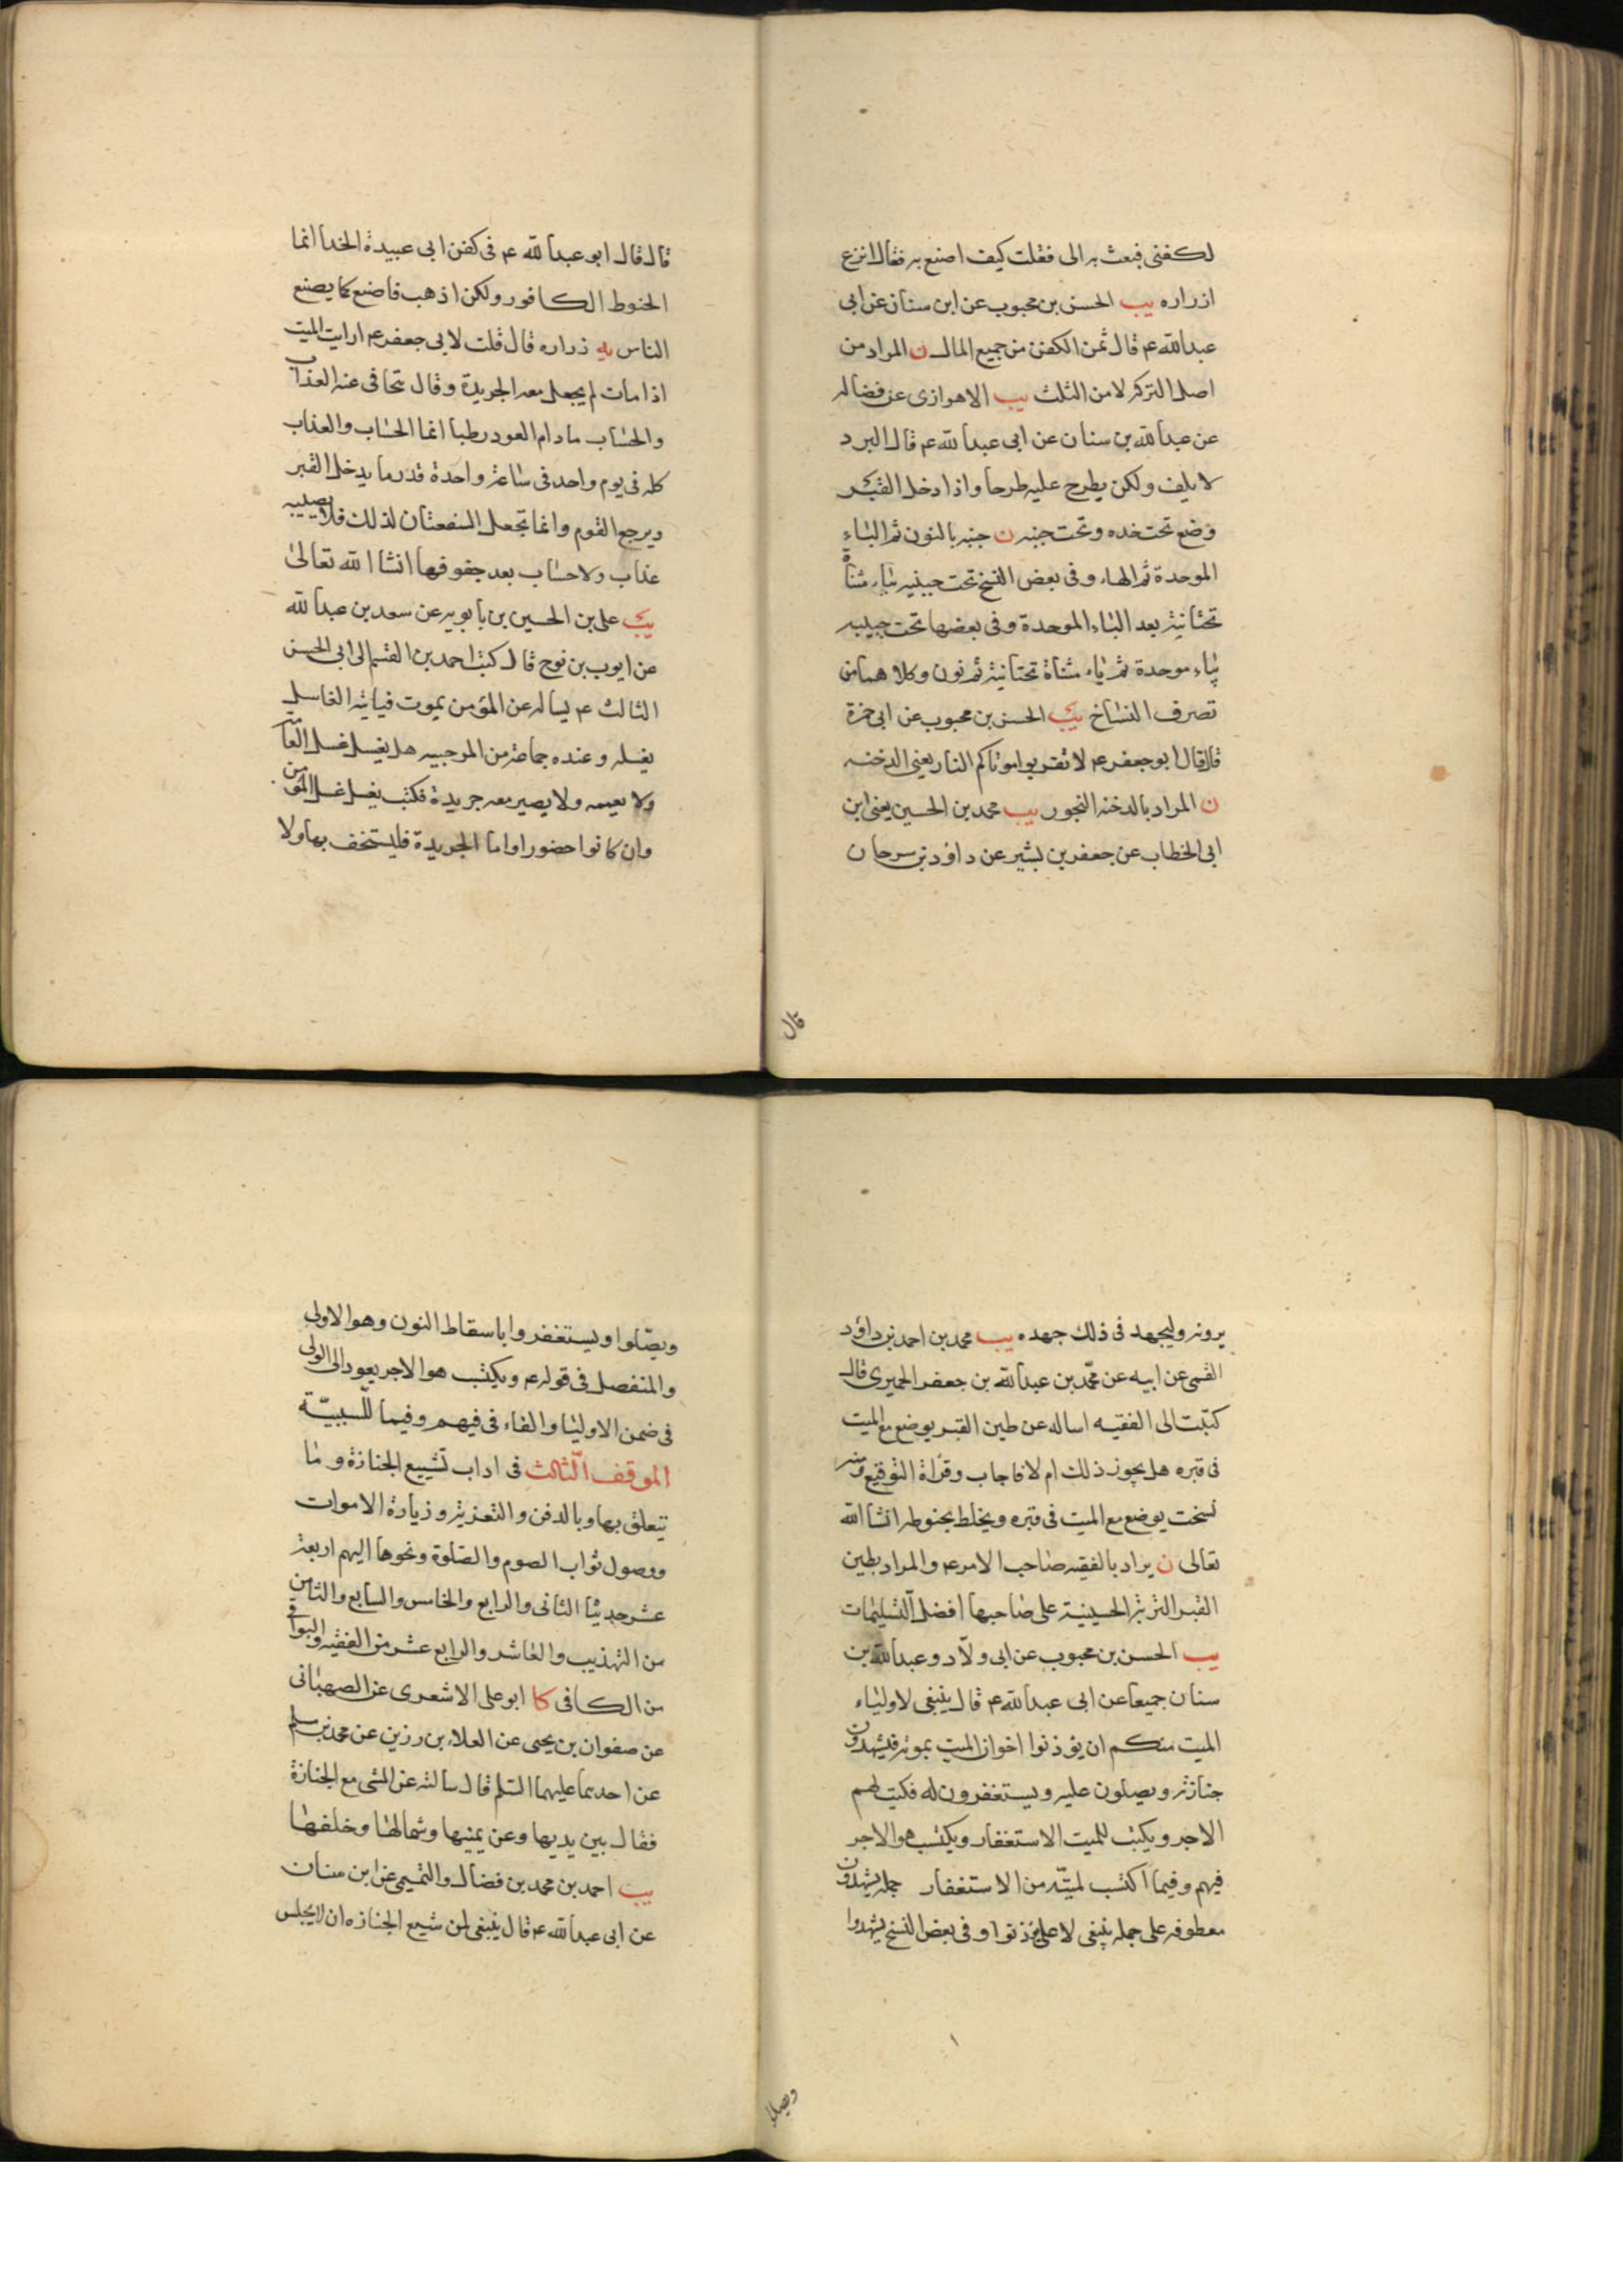 لكفنى فبعث به الى فقلت كيف اصنع به فقال انزع
ازراره يب الحسن بن محبوب عن ابن سنان عن ابى
عبدالله ع قال ثمن الكفن من جميع المال ن المراد من
اصل التركه لا من الثلث يب الاهوازى عن فضاله
عن عبدالله بن سنان عن ابى عبدالله ع قال البرد
لا يلف ولكن يطرح عليه طرحا واذا دخل القبر
وضع تحت خده وتحت جنبه ن جنبه بالنون ثم الباء
الموحدة ثم الهاء وفى بعض النسخ تحت جبينه بياء مثناة
تحتانية بعد الباء الموحدة وفى بعضها تحت جيبه
بباء موحدة ثم ياء مثناة تحتانية ثم نون وكلاهما من
تصرف النساخ يب الحسن بن محبوب عن ابى حمزة
قال قال ابو جعفر ع لا تقربوا موتاكم النار يعنى الدخنه
ن المراد بالدخنه البخور يب محمد بن الحسين يعنى ابن
ابى الخطاب عن جعفر بن بشير عن داود بن سرحان
قال
قال قال ابو عبدالله ع فى كفن ابى عبيدة الحذا انما
الحنوط الكافور ولكن اذهب فاصنع كما يصنع
الناس يه زراره قال قلت لابى جعفر ع ارايت الميت
اذا مات لم يجعل معه الجريدة وقال تجافى عنه العذاب
والحساب مادام العود رطبا انما الحساب والعذاب
كله فى يوم واحد فى ساعة واحدة قدر ما يدخل القبر
ويرجع القوم وانما تجعل السعفتان لذلك فلا يصيبه
عذاب ولا حساب بعد جفوفها انشا الله تعالى
يب على بن الحسين بن بابويه عن سعد بن عبدالله
عن ايوب بن نوح قال كتب احمد بن القسم الى ابى الحسن
الثالث ع يساله عن المؤمن يموت فياتيه الغاسل
يغسله وعنده جماعة من المرجيه هل يغسل غسل العامة
ولا يعممه ولا يصير معه جريدة فكتب يغسل غسل المؤمن
وان كانوا حضورا واما الجريدة فليستخف بها ولا
يرونه وليجهد فى ذلك جهده يب محمد بن احمد بن داود
القمى عن ابيه عن محمد بن عبدالله بن جعفر الحميرى قال
كتبت الى الفقيه اساله عن طين القبر يوضع مع الميت
فى قبره هل يجوز ذلك ام لا فاجاب وقرأة التوقيع ومنه
نسخت يوضع مع الميت فى قبره ويخلط بحنوطه انشا الله
تعالى ن يراد بالفقيه صاحب الامر ع والمراد بطين
القبر التربة الحسينية على صاحبها افضل التسليمات
يب الحسن بن محبوب عن ابى ولاد وعبدالله بن
سنان جميعا عن ابى عبدالله ع قال ينبغى لاولياء
الميت منكم ان يؤذنوا اخوان الميت بموته فيشهدون
جنازته ويصلون عليه ويستغفرون له فكتب لهم
الاجر ويكتب للميت الاستغفار ويكتسب هو الاجر
فيهم وفيما اكتسب لميته من الاستغفار جمله يشهدون
معطوفه على جمله ينبغى لا على يؤذنوا وفى بعض النسخ يشهدوا
ويصلوا
ويصلوا ويستغفروا باسقاط النون وهو الاولى
والمنفصل فى قوله ع ويكتسب هو الاجر يعود الى الولى
فى ضمن الاولياء والفاء فى فيهم وفيما للسببية
الموقف الثالث فى اداب تشييع الجنازة وما
يتعلق بها وبالدفن والتعزية وزيارة الاموات
ووصول ثواب الصوم والصلوة ونحوها اليهم اربعة
عشر حديثا الثانى والرابع والخامس والسابع والثامن
من التهذيب والعاشر والرابع عشر من الفقيه والبواقى
من الكافى كا ابو على الاشعرى عن الصهبانى
عن صفوان بن يحيى عن العلاء بن رزين عن محمد بن مسلم
عن احدهما عليهما السلم قال سالته عن المشى مع الجنازة
فقال بين يديها وعن يمينها وشمالها وخلفها
يب احمد بن محمد بن فضال والتميمى عن ابن سنان
عن ابى عبدالله ع قال ينبغى لمن شيع الجنازه ان لا يجلس